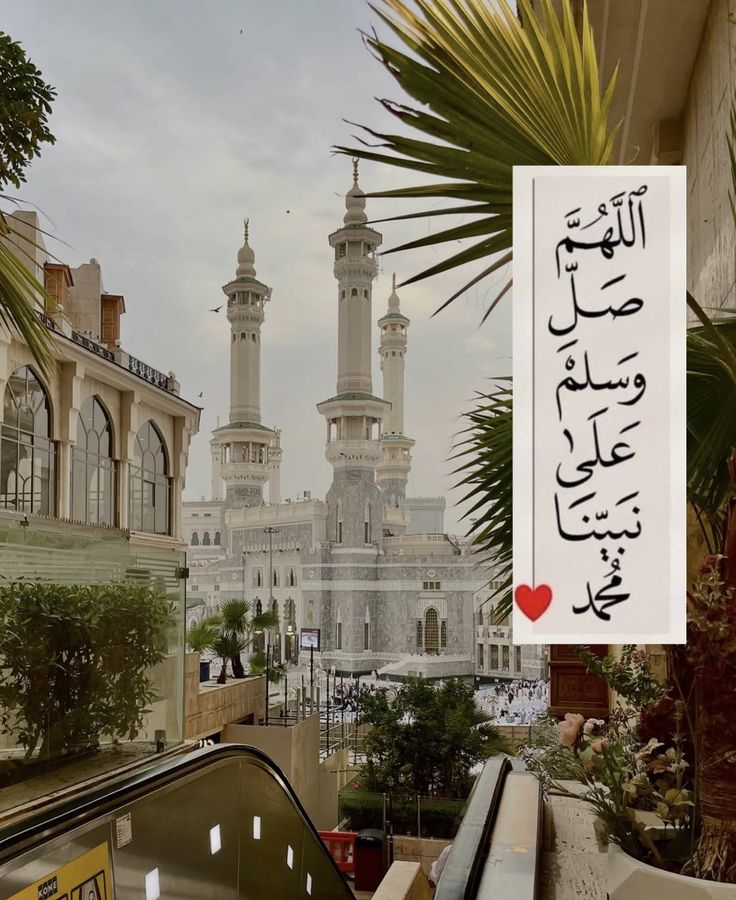 اللَّهُمَّ
صَلِّ
وَسَلِّمْ
عَلَى
نَبِيِّنَا
مُحمد
KONE